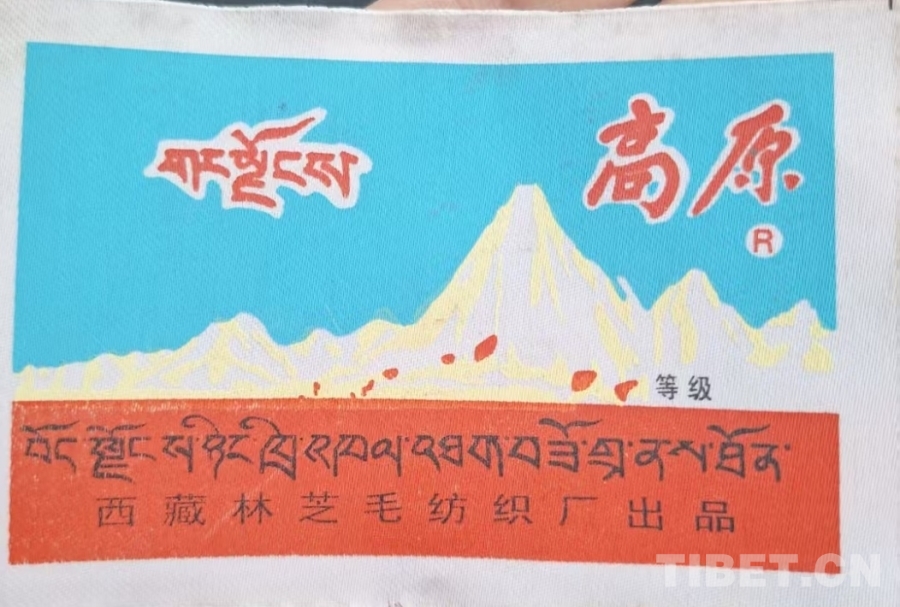 གངལྗོངས
高原
R
等级
བོད་ལྗོངས་ཉིང་ཁྲི་འཁལ་འཐག་བཟོ་གྲྭ་ནས་ཐོན་
西藏林芝毛纺织厂出品
TIBET.CN